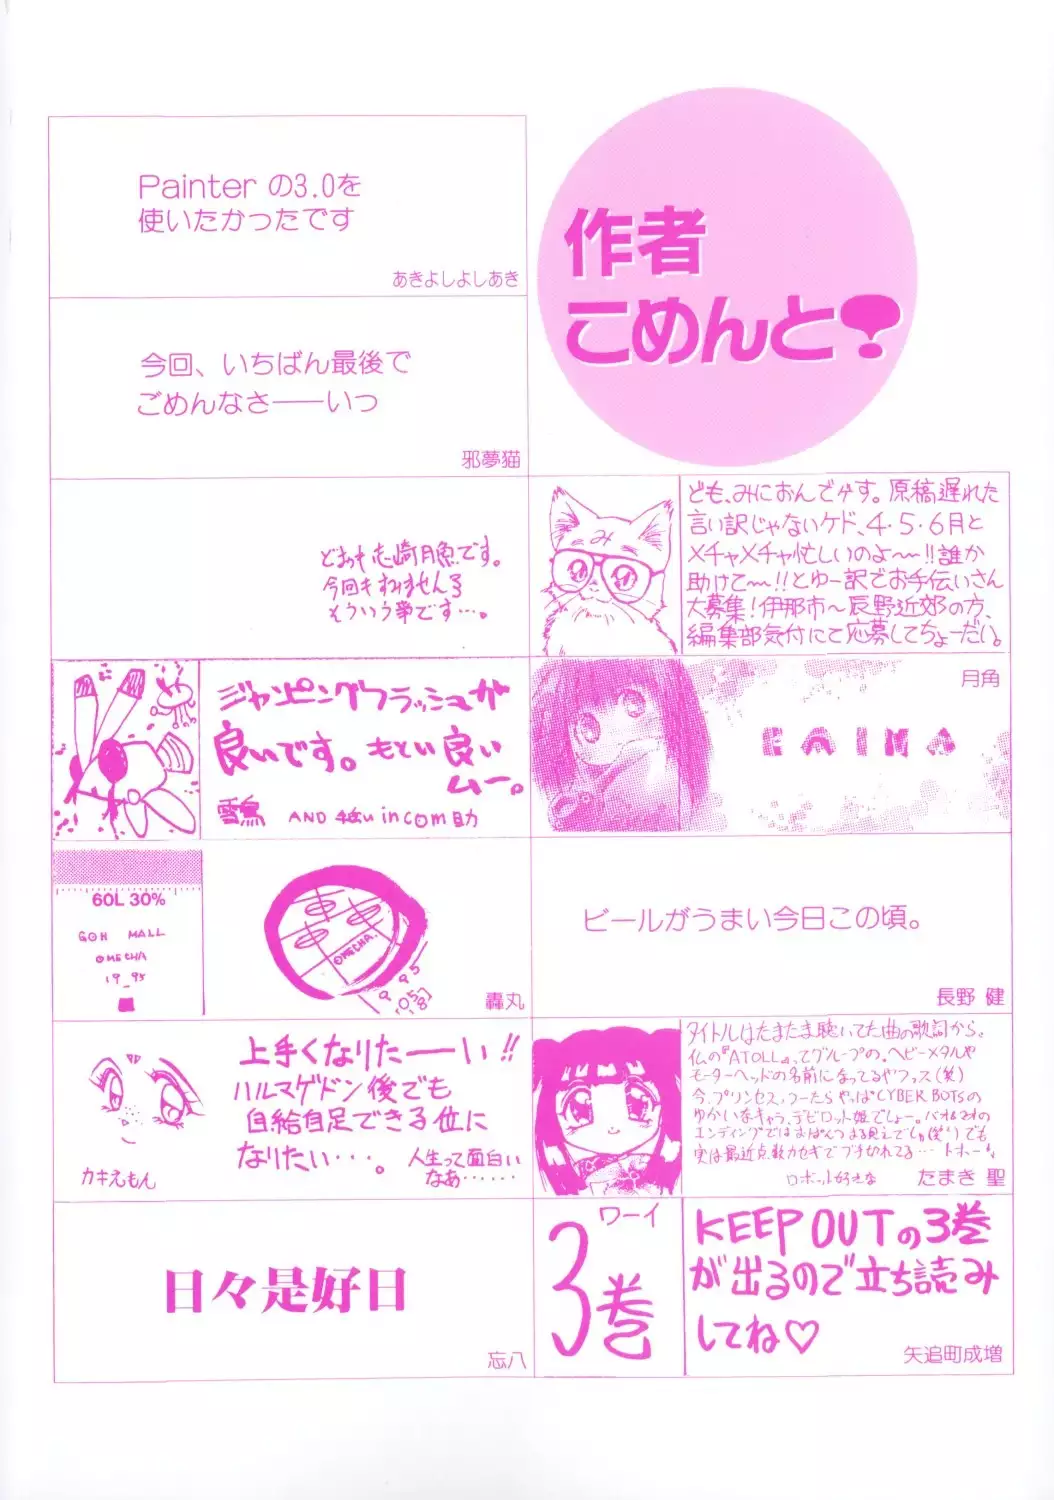 作者
こめんと?
Painter の3.0を
使いたかったです
あきよしよしあき
今回、いちばん最後で
ごめんなさ――いつ
邪夢猫
今回も すみません
そういう事です…。
み
ども、みにおんでゲす。原稿遅れた
言い訳じゃないケド、4・5・6月と
メチャメチャ忙しいのよ〜!!誰か
助けて〜!!とゆー訳でお手伝いさん
大募集!伊那市〜辰野近郊の方、
編集部気付にて応募してちょーだい。
ジャンピングフラッシュが
良いです。もとい良い
ムー。
AND in com助
月角
60L 30%
GOH MALL
OMECHA
19_95
OMECHA.
轟丸
ビールがうまい今日この頃。
長野 健
上手くなりたーーい!!
ハルマゲドン後でも
自給自足できる位に
なりたい…。
人生って面白い
なあ……
カキえもん
タイトルはたまたま聴いてた曲の歌詞から。
仏の『ATOLL』ってグループの。ヘビーメタルや
モーターヘッドの名前になってるヤファス(笑)
今、プリンセスっつーたらやっぱCYBER BOTSの
ゆかいなキャラ、デビロット姫でしょー。
ロボット好きな
たまき 聖
日々是好日
忘八
ワーイ
3巻
KEEP OUTの3巻
が出るので立ち読み
してね♡
矢追町成増